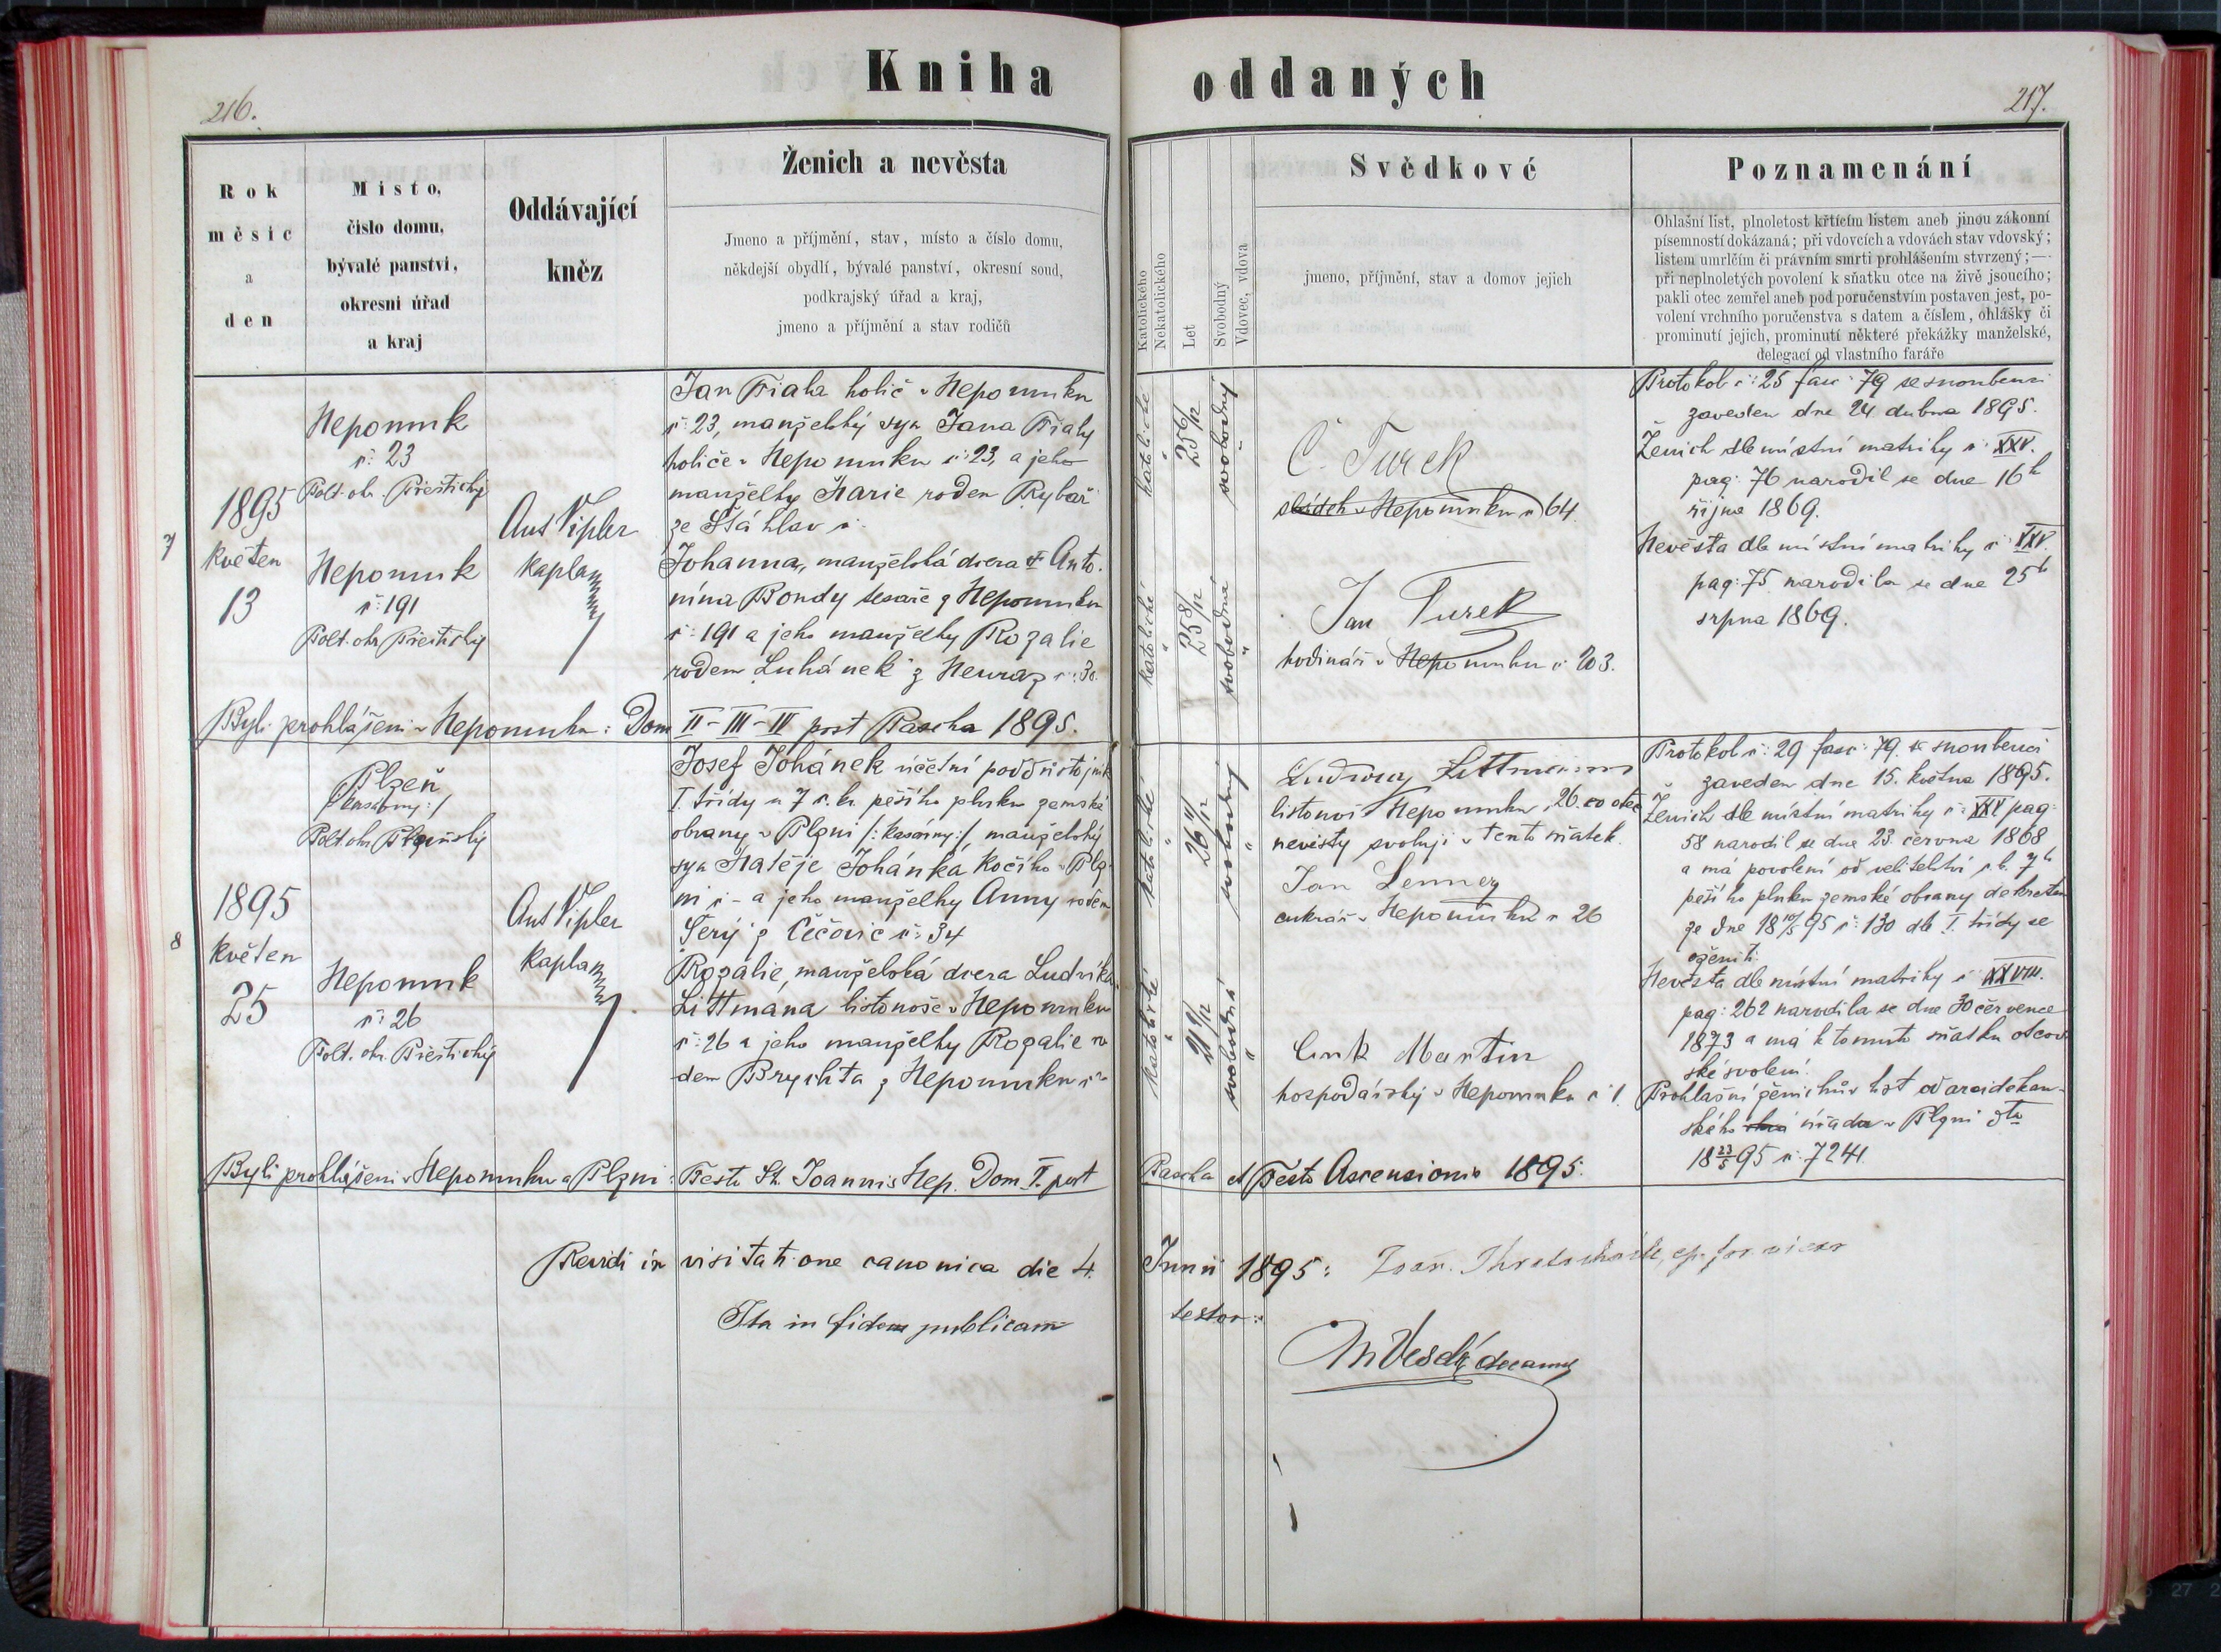 Kniha oddaných
216.
217.
Rok
měsíc
a
den
Místo,
číslo domu,
bývalé panství,
okresní úřad
a kraj
Oddávající
kněz
Ženich a nevěsta
Jmeno a příjmění, stav, místo a číslo domu,
někdejší obydlí, bývalé panství, okresní soud,
podkrajský úřad a kraj,
jmeno a příjmění a stav rodičů
Katolického
Nekatolického
Let
Svobodný
Vdovec, vdova
Svědkové
jmeno, příjmění, stav a domov jejich
Poznamenání
Ohlašní list, plnoletost křtícím listem aneb jinou zákonní
písemností dokázaná; při vdovcích a vdovách stav vdovský;
listem umrlčím či právním smrti prohlášením stvrzený;—
při neplnoletých povolení k sňatku otce na živě jsoucího;
pakli otec zemřel aneb pod poručenstvím postaven jest, po-
volení vrchního poručenstva s datem a číslem, ohlášky či
prominutí jejich, prominutí některé překážky manželské,
delegací od vlastního faráře
7
1895
květen
13
Nepomuk
č: 23
Polt. okr. Přeštický
Nepomuk
č: 191
Polt. okr. Přeštický
Ant Vipler
kaplan
Jan Fiala holič v Nepomuku
č: 23, manželský syn Jana Fialy
holiče v Nepomuku č: 23, a jeho
manželky Marie rozen Rybař
ze Šťáhlav č:
Johanna, manželská dcera † Anto-
nína Bondy tesaře z Nepomuku
č: 191 a jeho manželky Rozalie
rodem Luhánek z Neuraz č: 30.
katolické
"
25 6/12
svobodný
"
katolické
"
25 8/12
svobodná
"
Č. Turek
sládek v Nepomuku č 64.
Jan Turek
hodinář v Nepomuku č: 203.
Protokol č: 25 fasc: 79 se snoubenci
zaveden dne 24 dubna 1895.
Ženich dle místní matriky č: XXV.
pag: 76 narodil se dne 16h
října 1869.
Nevěsta dle místní matriky č: XXV.
pag: 75 narodila se dne 25h
srpna 1869.
Byli prohlášeni v Nepomuku: Dom II - III - IV post Pascha 1895.
8
1895
květen
25
Plzeň
/:kasárny:/
Polt. okr. Plzeňský
Nepomuk
č: 26
Polt. okr. Přeštický
Ant Vipler
kaplan
Josef Johánek účetní poddůstojník
I. třídy u 7 c. k. pěšího pluku zemské
obrany v Plzni /:kasárny:/, manželský
syn Matěje Johánka kočího v Plz-
ni č - a jeho manželky Anny rodem
Šerý z Čečovic č: 34
Rozalie, manželská dcera Ludvíka
Littmana listonoše v Nepomuku
č: 26 a jeho manželky Rozalie ro
dem Brychta z Nepomuku č
katolické
"
26 11/12
svobodný
"
katolické
"
21 9/12
svobodná
"
Ludwig Littmann
listonoš Nepomuku, 26. co otec
nevěsty svoluji v tento sňatek.
Jan Lenner
cukrář v Nepomuku č 26
Cink Martin
hospodářský v Nepomuku č 1.
Protokol č: 29 fasc: 79. se snoubenci
zaveden dne 15. května 1895.
Ženich dle místní matriky č: XXV pag:
58 narodil se dne 23. června 1868
a má povolení od velitelství c. k. 7h
pěšího pluku zemské obrany dekretem
ze dne 18 10/5 95 č: 130 dle I. třídy se
oženiti.
Nevěsta dle místní matriky č XXVIII.
pag: 262 narodila se dne 30 července
1873 a má k tomuto sňatku otcov-
ské svolení.
Prohlašní ženichův list od arcidekan-
ského úřadu v Plzni dto
18 23/5 95 č: 7241
Byli prohlášeni v Nepomuku a Plzni: Festo St. Joannis Nep. Dom V. post Pascha et Festo Ascensionis 1895.
Revidi in visitatione canonica die 4. Junii 1895: Joan.
Ita in fidem publicam testor:
decanus